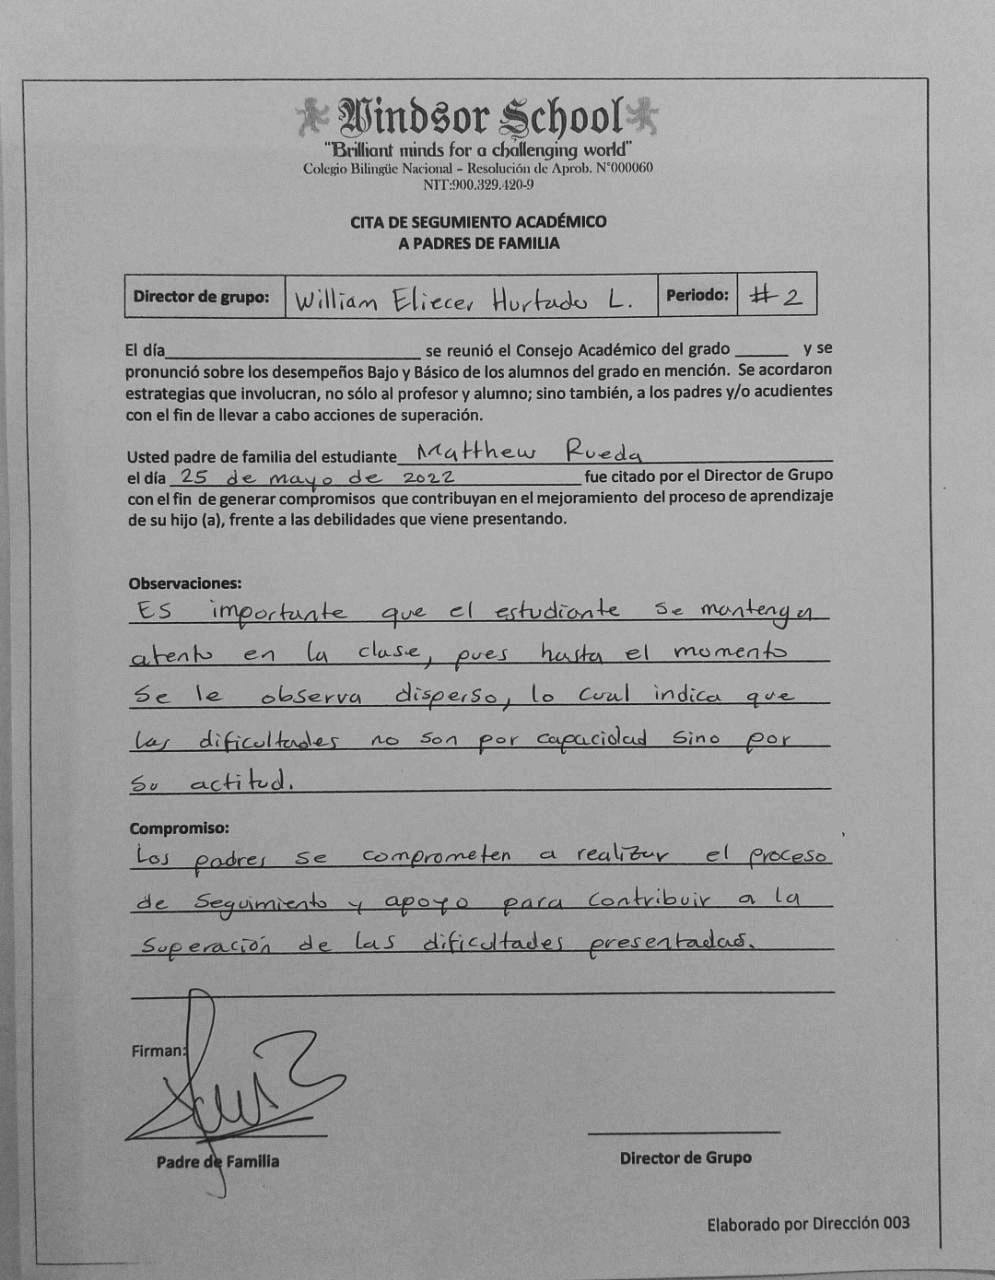 Windsor School
"Brilliant minds for a challenging world"
Colegio Bilingüe Nacional - Resolución de Aprob. N°000060
NIT:900.329.420-9
CITA DE SEGUMIENTO ACADÉMICO
A PADRES DE FAMILIA
Director de grupo: William Eliecer Hurtado L. Periodo: #2
El día______ se reunió el Consejo Académico del grado ______ y se
pronunció sobre los desempeños Bajo y Básico de los alumnos del grado en mención. Se acordaron
estrategias que involucran, no sólo al profesor y alumno; sino también, a los padres y/o acudientes
con el fin de llevar a cabo acciones de superación.
Usted padre de familia del estudiante Matthew Rueda
el día 25 de mayo de 2022 fue citado por el Director de Grupo
con el fin de generar compromisos que contribuyan en el mejoramiento del proceso de aprendizaje
de su hijo (a), frente a las debilidades que viene presentando.
Observaciones:
Es importante que el estudiante se mantenga
atento en la clase, pues hasta el momento
se le observa disperso, lo cual indica que
las dificultades no son por capacidad sino por
su actitud.
Compromiso:
Los padres se comprometen a realizar el proceso
de seguimiento y apoyo para contribuir a la
superación de las dificultades presentadas.
Firman:
Padre de Familia
Director de Grupo
Elaborado por Dirección 003